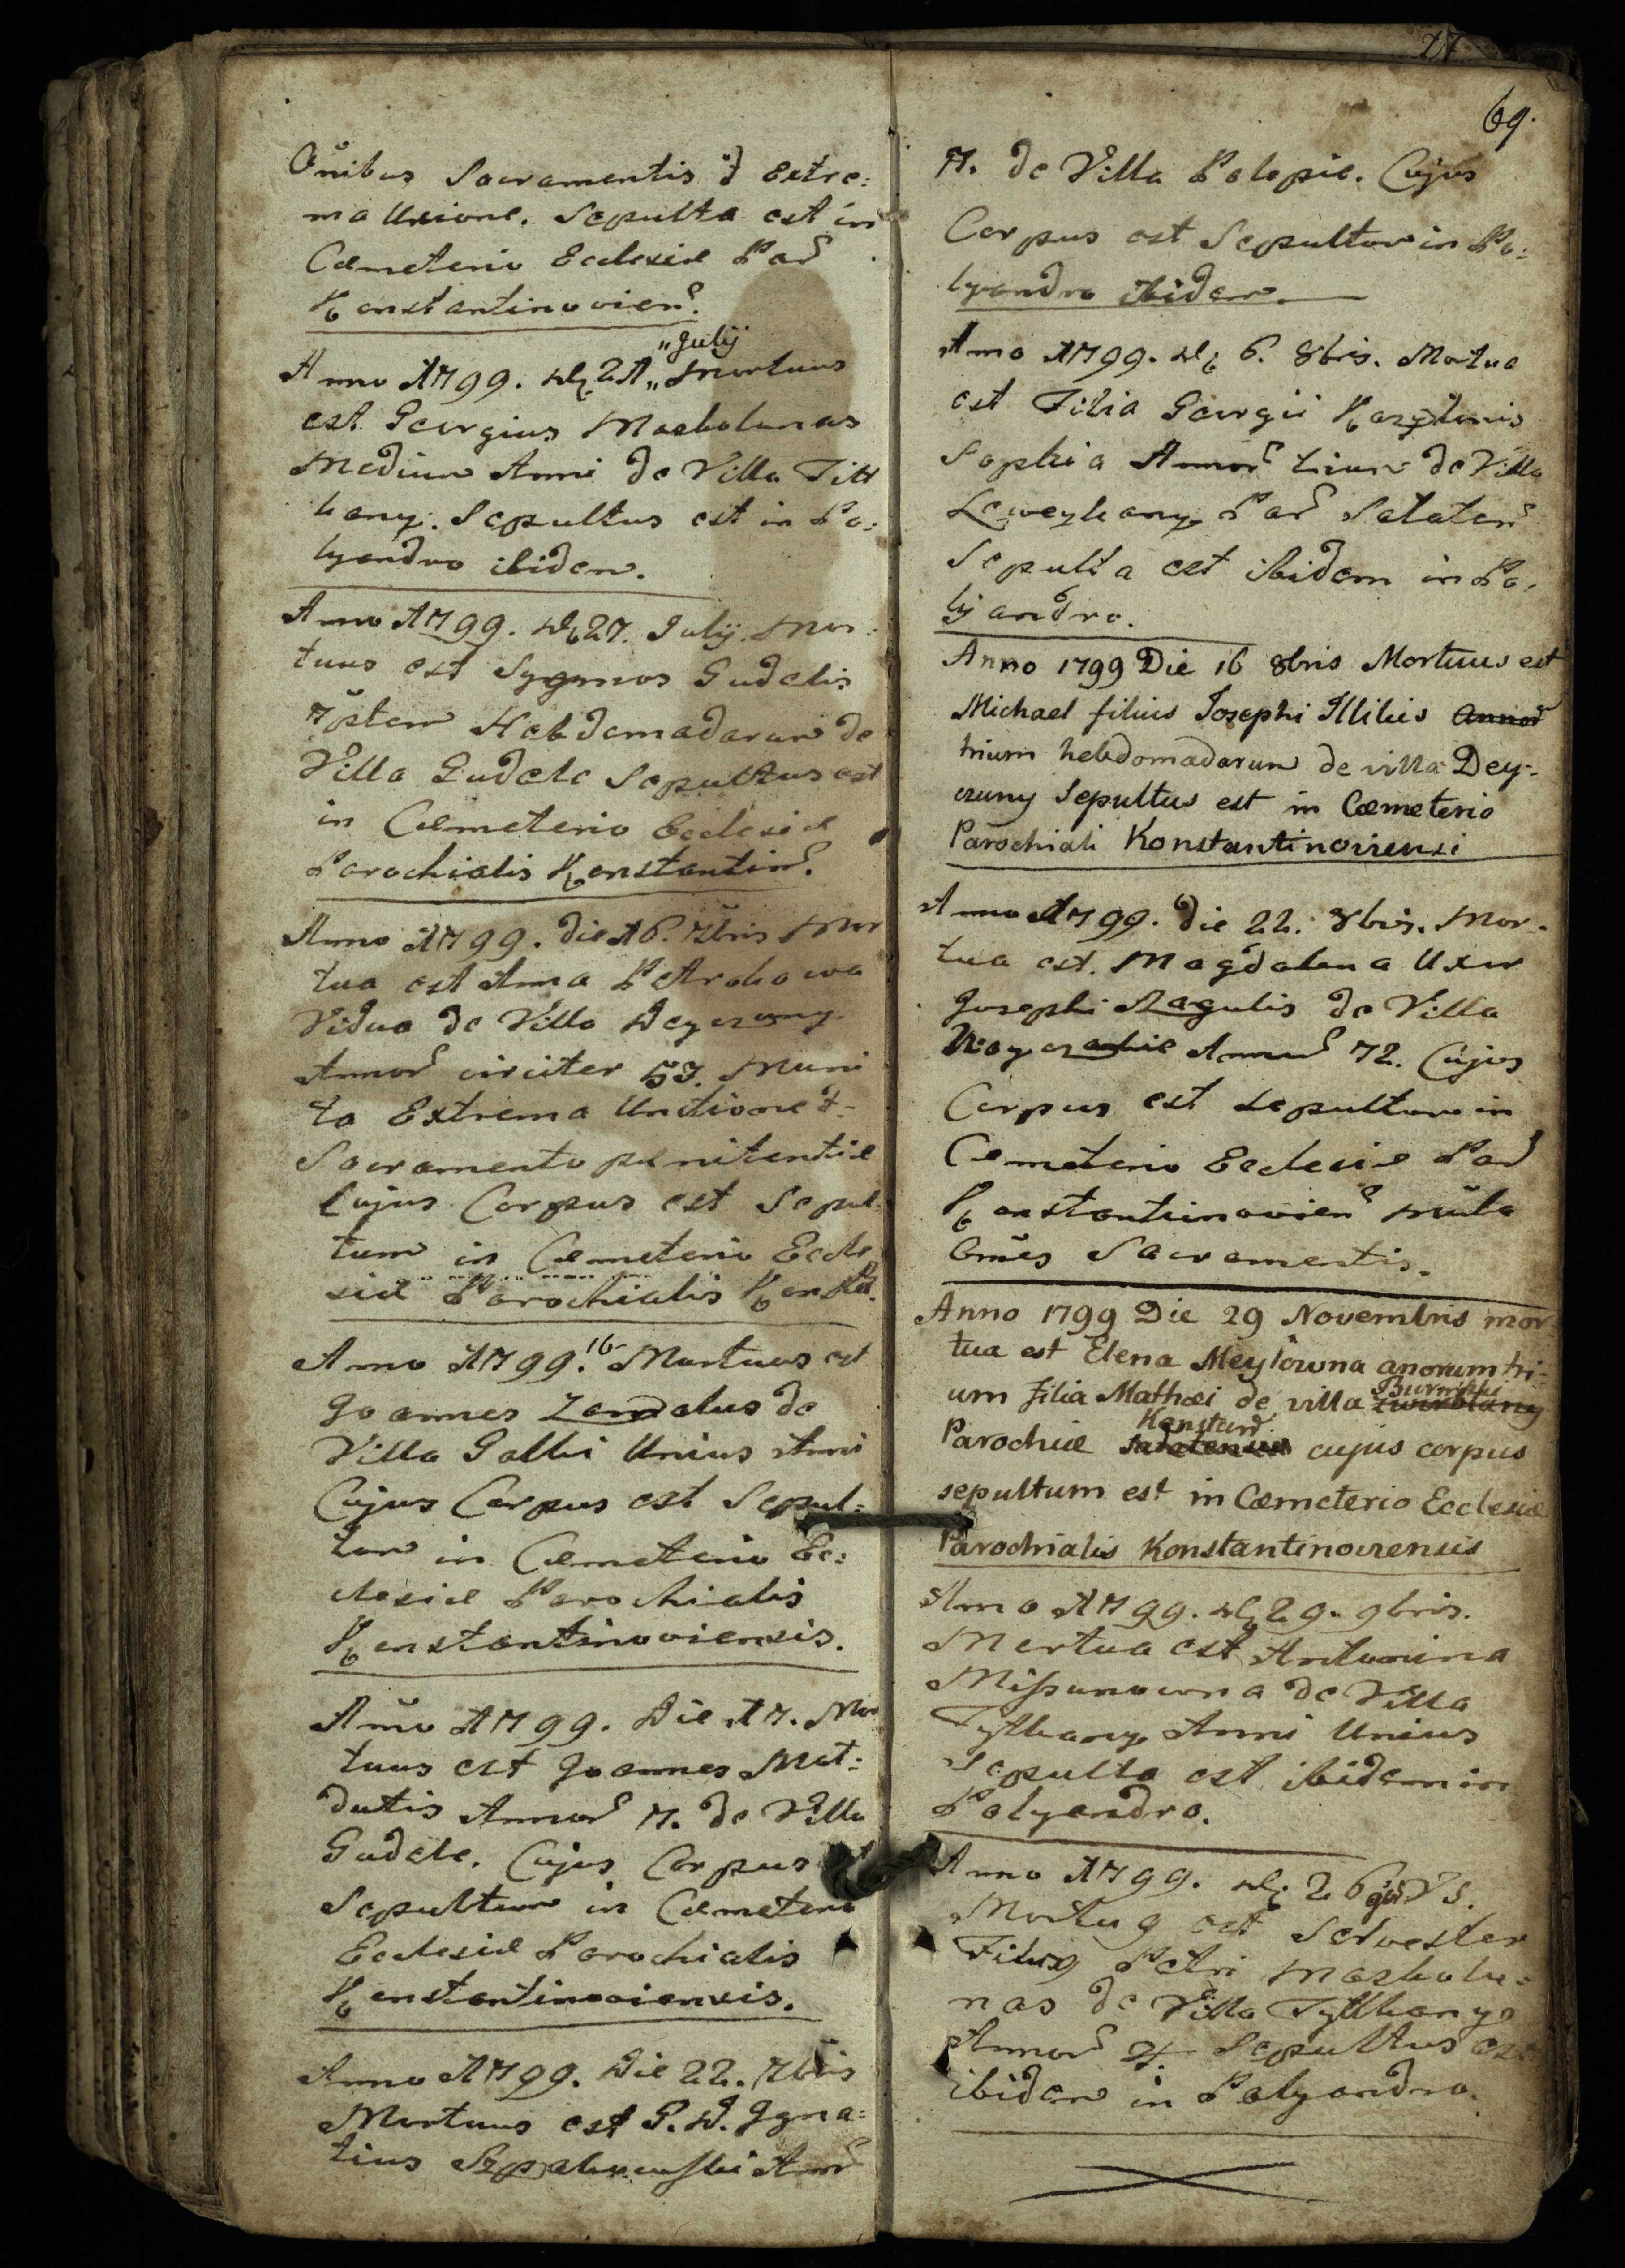 Om̄ibus Sacramentis et Extre:
ma Unxione. Sepulta est in
Cœmeterio Ecclesiæ Par̃
Konstantinovien̄.
Anno 1799. d. 21 „ Julij „ Mortuus
est Georgius Maskolunas
Medium Anni de Villa Titt
kany. Sepultus est in Po:
lyandro ibidem.
Anno 1799. d. 27. Julij. Mor:
tuus est Sygmos Gudelis
7ptem Hebdomadarum de
Villa Gudele Sepultus est
in Cœmeterio Ecclesiæ
Parochialis Konstantin̄.
Anno 1799. die 16. 7bris Mor
tua est Anna Petrokowa
Vidua de Villa Deyczuny
Annor̃ circiter 53. Muni
ta Extrema Unctione et
Sacramento pænitentiæ
Cujus Corpus est Sepul
tum in Cœmeterio Eccle
siæ Parochialis Konst̃.
Anno 1799. 16 Mortuus est
Joannes Zendalus de
Villa Galbi Unius Anni
Cujus Corpus est Sepul=
tum in Cœmeterio Ec:
clesiæ Parochialis
Konstantinoviensis.
An̄o 1799. Die 17. Mor
tuus est Joannes Mat:
dutis Annor̃ 7. de Villa
Gudele. Cujus Corpus
Sepultum in Cœmeterio
Ecclesiæ Parochialis
Konstantinoviensis.
Anno 1799. Die 22. 7bris
Mortuus est G. D. Igna=
tius Szpakowski Annor̃
69.
7. de Villa Polepie. Cujus
Corpus est Sepultum in Po:
lyandro ibidem.
Anno 1799. d. 6. 8bris. Mortua
est Filia Georgii
Sophia Annor̃ trium de Villa
Par̃ Salaten̄
Sepulta est ibidem in Po:
lyandro.
Anno 1799 Die 16 8bris Mortuus est
Michael filius Josephi Illikis Annor̃
trium hebdomadarum de villa Dey-
czuny Sepultus est in Cœmeterio
Parochiali Konstantinoviensi
Anno 1799. die 22. 8bris. Mor-
tua est. Magdalena Uxor
Josephi Ragulis de Villa
Annor̃ 72. Cujus
Corpus est sepultum in
Cœmeterio Ecclesiæ Par̃
Konstantinovien̄ mūita
Om̄es Sacramentis.
Anno 1799 Die 29 Novembris mor
tua est Elena Meylowna anorum tri-
um filia Mathæi de villa
Parochiæ Konstan̄ cujus corpus
sepultum est in Cœmeterio Ecclesiæ
Parochialis Konstantinoviensis
Anno 1799. d. 29. 9bris.
Mortua est Antonina
Missunowna de Villa
Tytkany Anni Unius
Sepulta est ibidem in
Polyandro.
Anno 1799. d. 26
Mortuq est Selvester
Filiuq Petri Maskolu=
nas de Villa Tyttkany
Annor̃ 4 Sepultus est
ibidem in Polyandro.